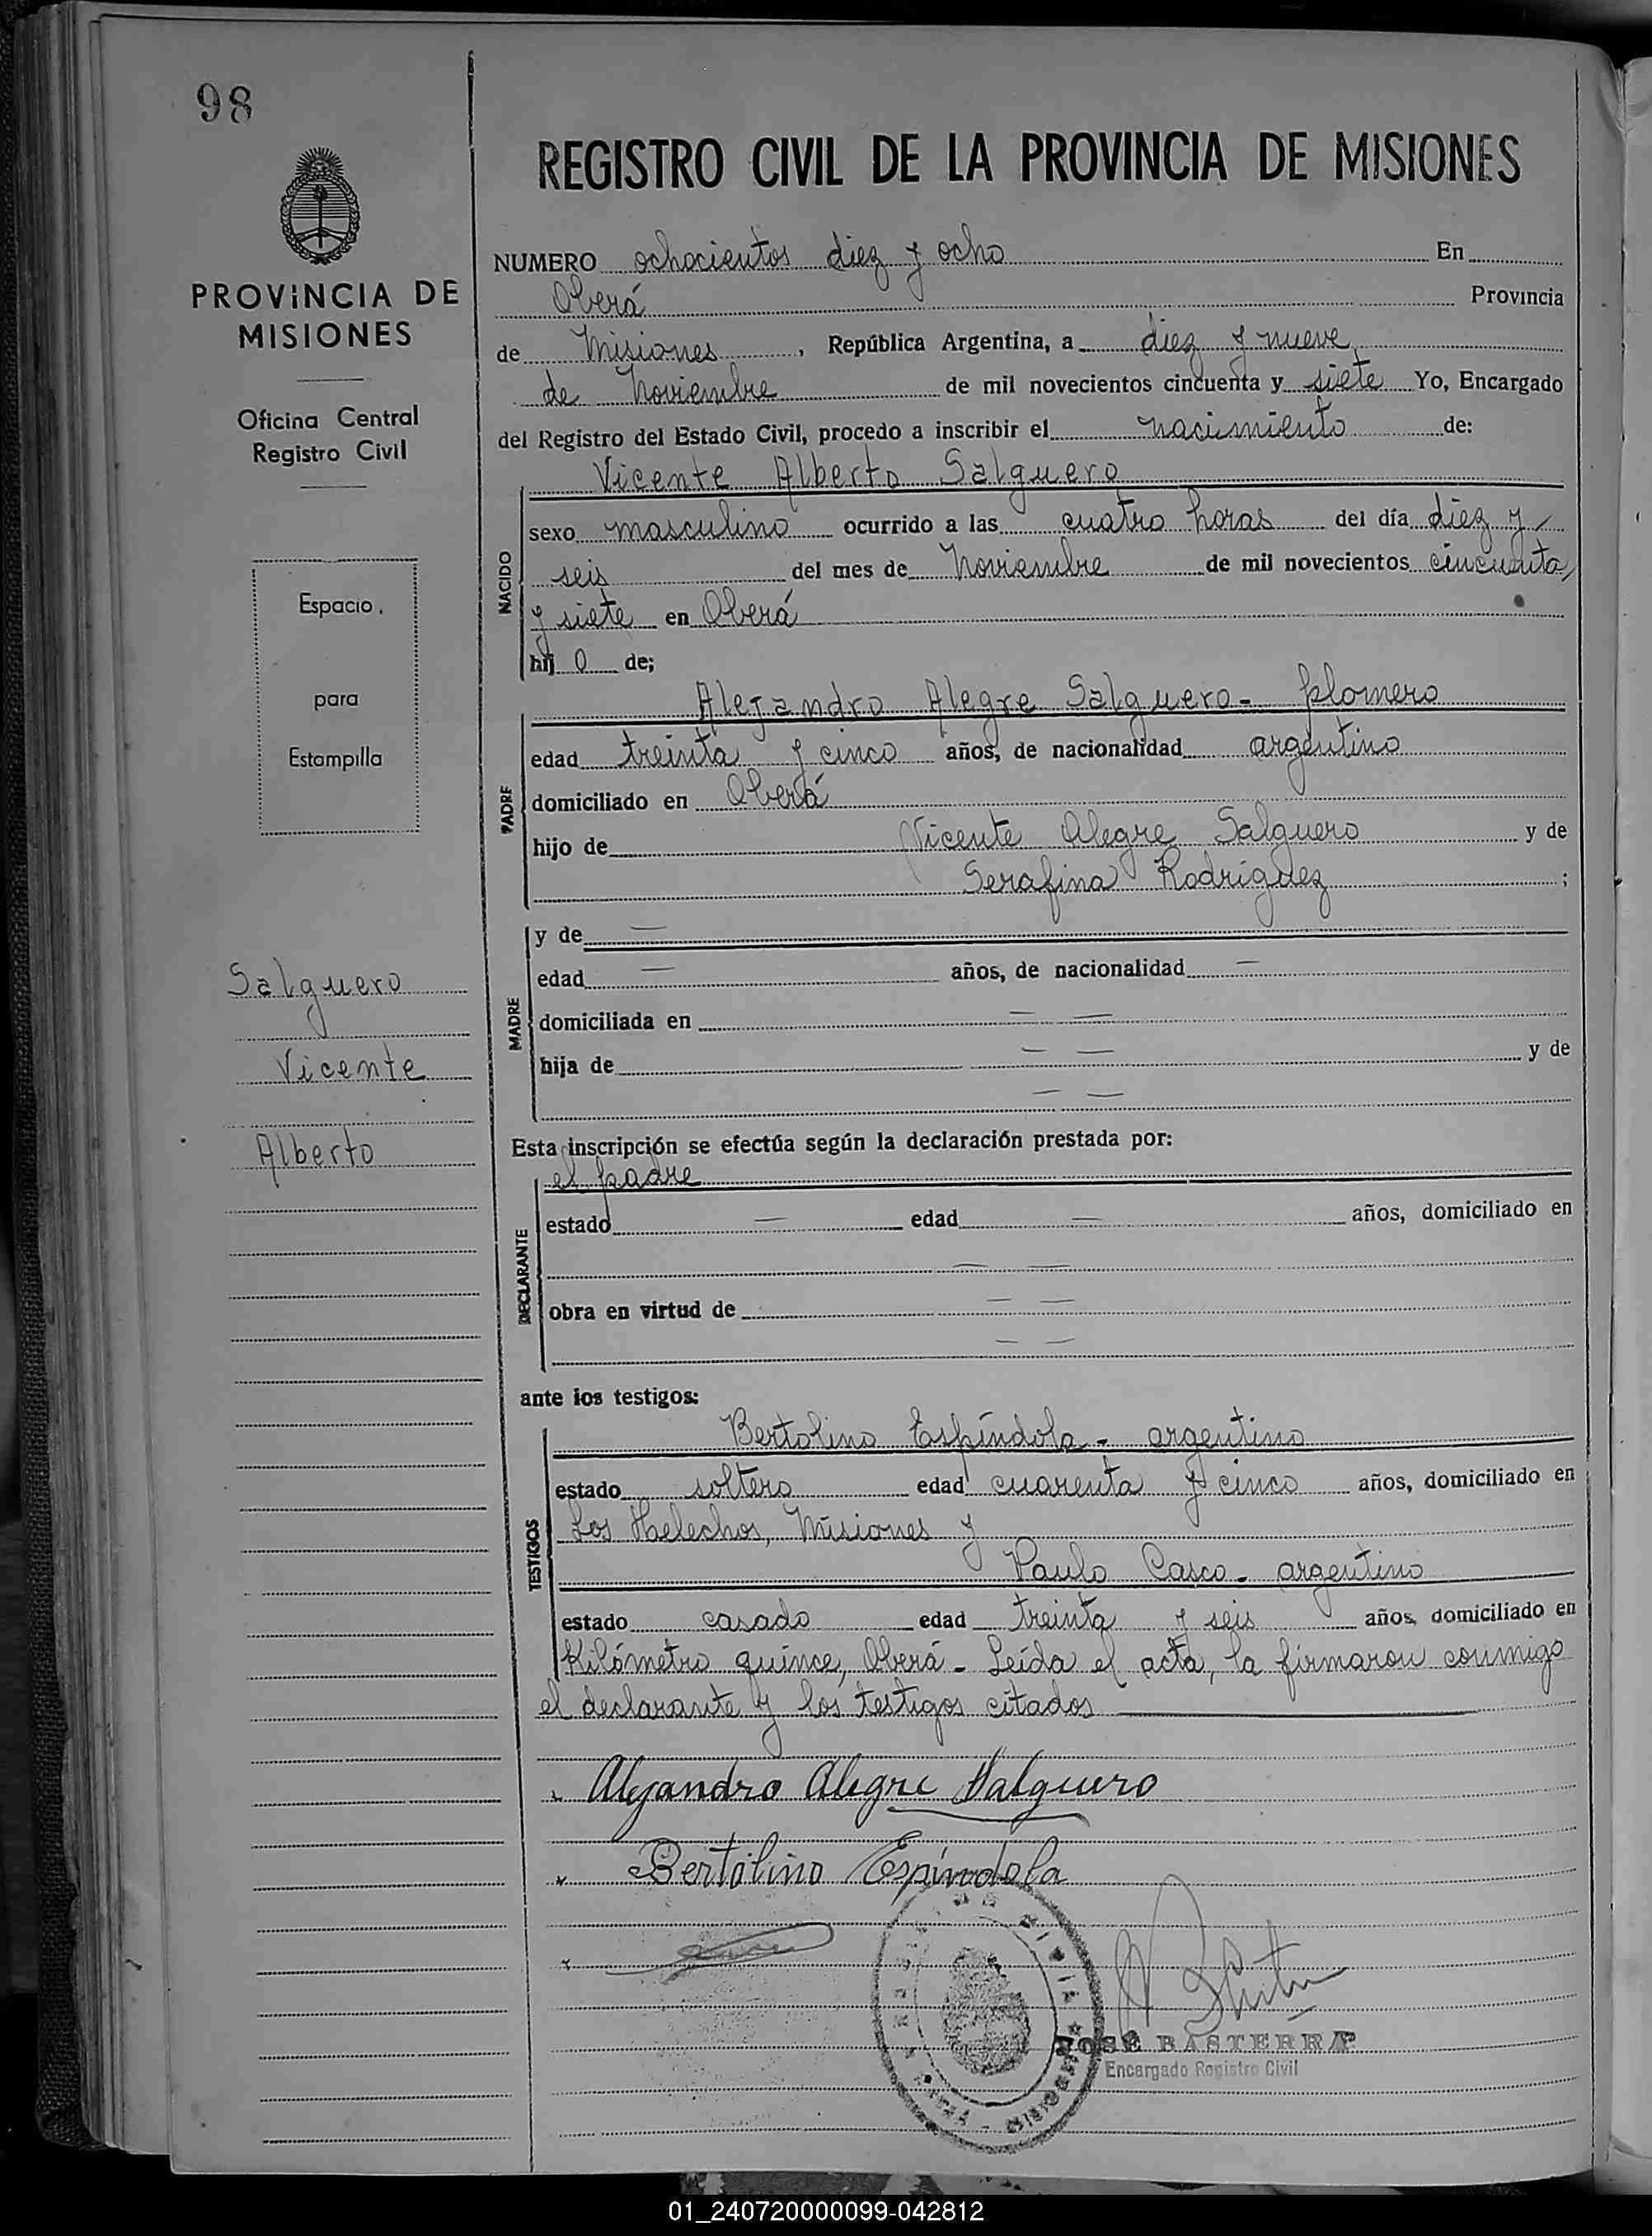 98
PROVINCIA DE
MISIONES
Oficina Central
Registro Civil
Espacio
para
Estampilla
Salguero
Vicente
Alberto
REGISTRO CIVIL DE LA PROVINCIA DE MISIONES
NUMERO ochocientos diez y ocho En
Oberá Provincia
de Misiones, República Argentina, a diez y nueve
de Noviembre de mil novecientos cincuenta y siete Yo, Encargado
del Registro del Estado Civil, procedo a inscribir el nacimiento de:
Vicente Alberto Salguero
NACIDO
sexo masculino ocurrido a las cuatro horas del día diez y
seis del mes de Noviembre de mil novecientos cincuenta
y siete en Oberá
hij o de;
Alejandro Alegre Salguero - plomero
PADRE
edad treinta y cinco años, de nacionalidad argentino
domiciliado en Oberá
hijo de Vicente Alegre Salguero y de
Serafina Rodríguez ;
MADRE
y de —
edad — años, de nacionalidad —
domiciliada en — —
hija de — — y de
— —
Esta inscripción se efectúa según la declaración prestada por:
el padre
DECLARANTE
estado — edad — años, domiciliado en
— —
obra en virtud de — —
— —
ante los testigos:
Bertolino Espíndola - argentino
TESTIGOS
estado soltero edad cuarenta y cinco años, domiciliado en
Los Helechos, Misiones y
Paulo Casco - argentino
estado casado edad treinta y seis años, domiciliado en
Kilómetro quince, Oberá - Leída el acta, la firmaron conmigo
el declarante y los testigos citados
Alejandro Alegre Salguero
Bertolino Espíndola
JOSE BASTERRA
Encargado Registro Civil
01_240720000099-042812